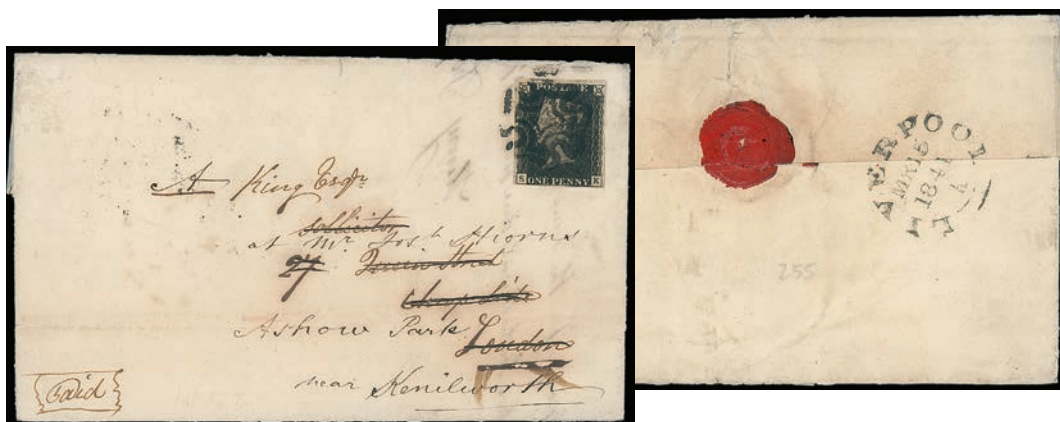 POSTAGE
S K
ONE PENNY
A King Esqr
sollicitor
at Mr Josh Hiorns
27 Queen Street
Cheapside
Ashow Park London
near Kenilworth
Paid
LIVERPOOL
MR 15
1841
A
255